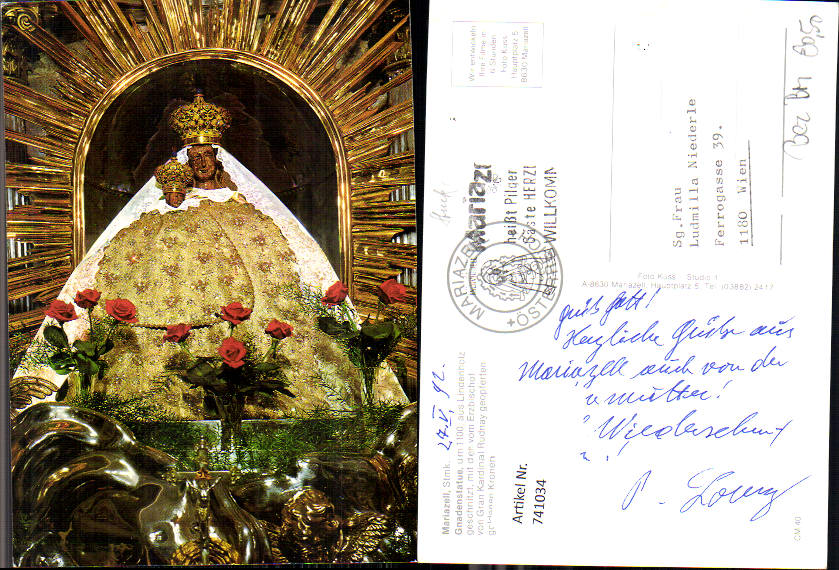 Wir entwickeln
Ihre Filme in
6 Stunden
Foto Kuss
Hauptplatz 5
8630 Mariazell
Mariazell
heißt Pilger
Gäste HERZL
WILLKOMM
MARIAZELL
ÖSTE
Sg.Frau
Ludmilla Niederle
Ferrogasse 39.
1180 Wien
Foto Kuss Studio 1
A-8630 Mariazell, Hauptplatz 5, Tel. (03882) 2417
Grüß Gott!
Herzliche Grüße aus
Mariazell auch von der
Mutter!
Wiedersehen
P.
27.V. 92.
Mariazell, Stmk.
Gnadenstatue, um 1100 aus Lindenholz
geschnitzt, mit der vom Erzbischof
von Gran Kardinal Rudnay geopferten
goldenen Kronen
Artikel Nr.
741034
CM 40